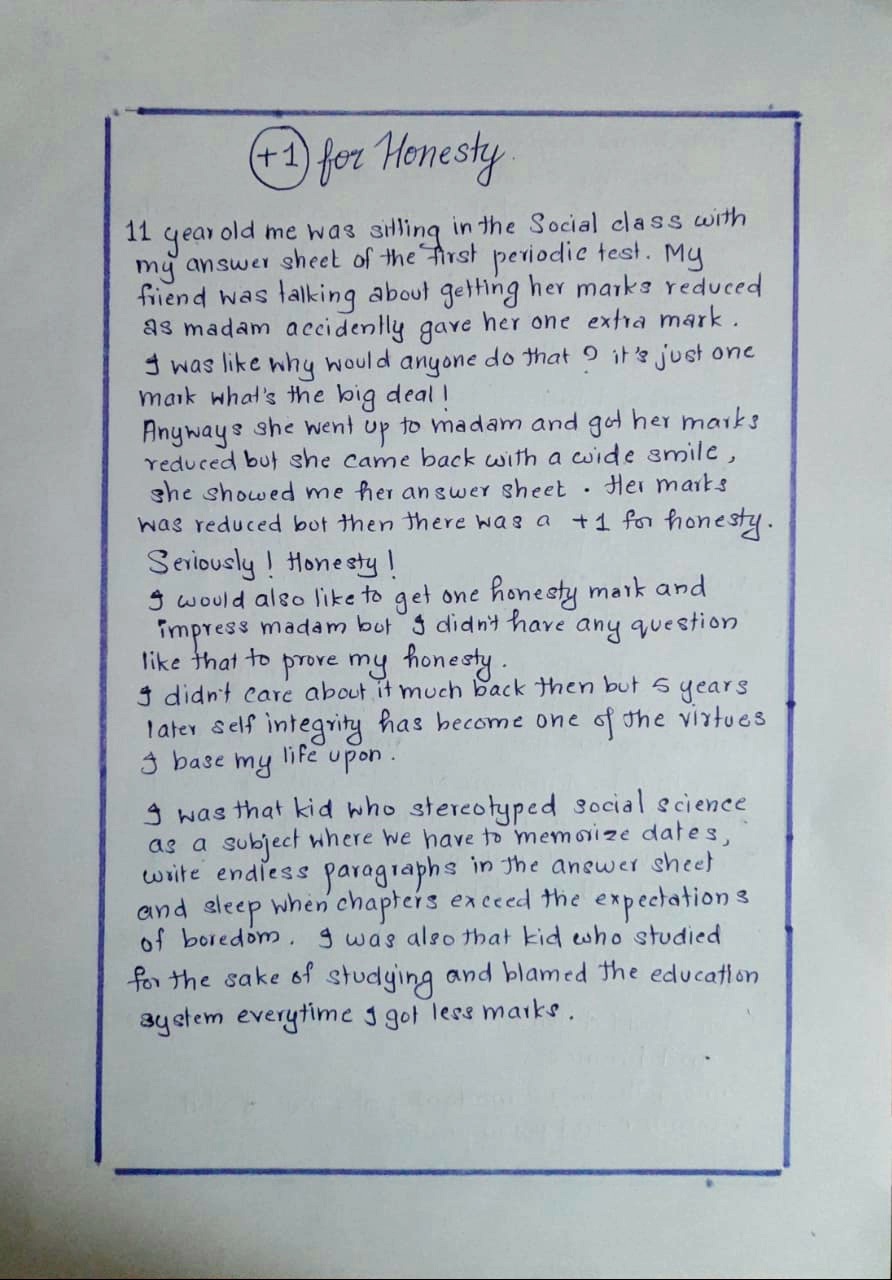 +1 for Honesty.
11 year old me was sitting in the Social class with
my answer sheet of the first periodic test. My
friend was talking about getting her marks reduced
as madam accidently gave her one extra mark.
I was like why would anyone do that ? it's just one
mark what's the big deal!
Anyways she went up to madam and got her marks
reduced but she came back with a wide smile,
she showed me her answer sheet. Her marks
was reduced but then there was a +1 for honesty.
Seriously! Honesty!
I would also like to get one honesty mark and
impress madam but I didn't have any question
like that to prove my honesty.
I didn't care about it much back then but 5 years
later self integrity has become one of the virtues
I base my life upon.
I was that kid who stereotyped social science
as a subject where we have to memorize dates,
write endless paragraphs in the answer sheet
and sleep when chapters exceed the expectations
of boredom. I was also that kid who studied
for the sake of studying and blamed the education
system everytime I got less marks.